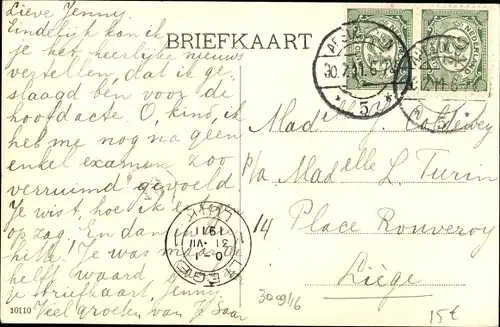 Lieve Jenny.
Eindelijk kan ik
je het heerlijke nieuws
vertellen, dat ik ge-
slaagd ben voor de
hoofdacte. O, kind, ik
heb me nog na geen
enkel examen zoo
verruimd gevoeld
Je wist, hoe ik er
op zag. En dan in die
hitte. Je was
helft waard
briefkaart, Jenny
Veel groeten van
10110
BRIEFKAART
NEDERLAND
2½
30.7.11.6-7
5
Madelle
p/a Madelle L. Turin
14 Place Rouveroy
Liège
LIEGE
31 VII
1911
LUIK
300916
15€